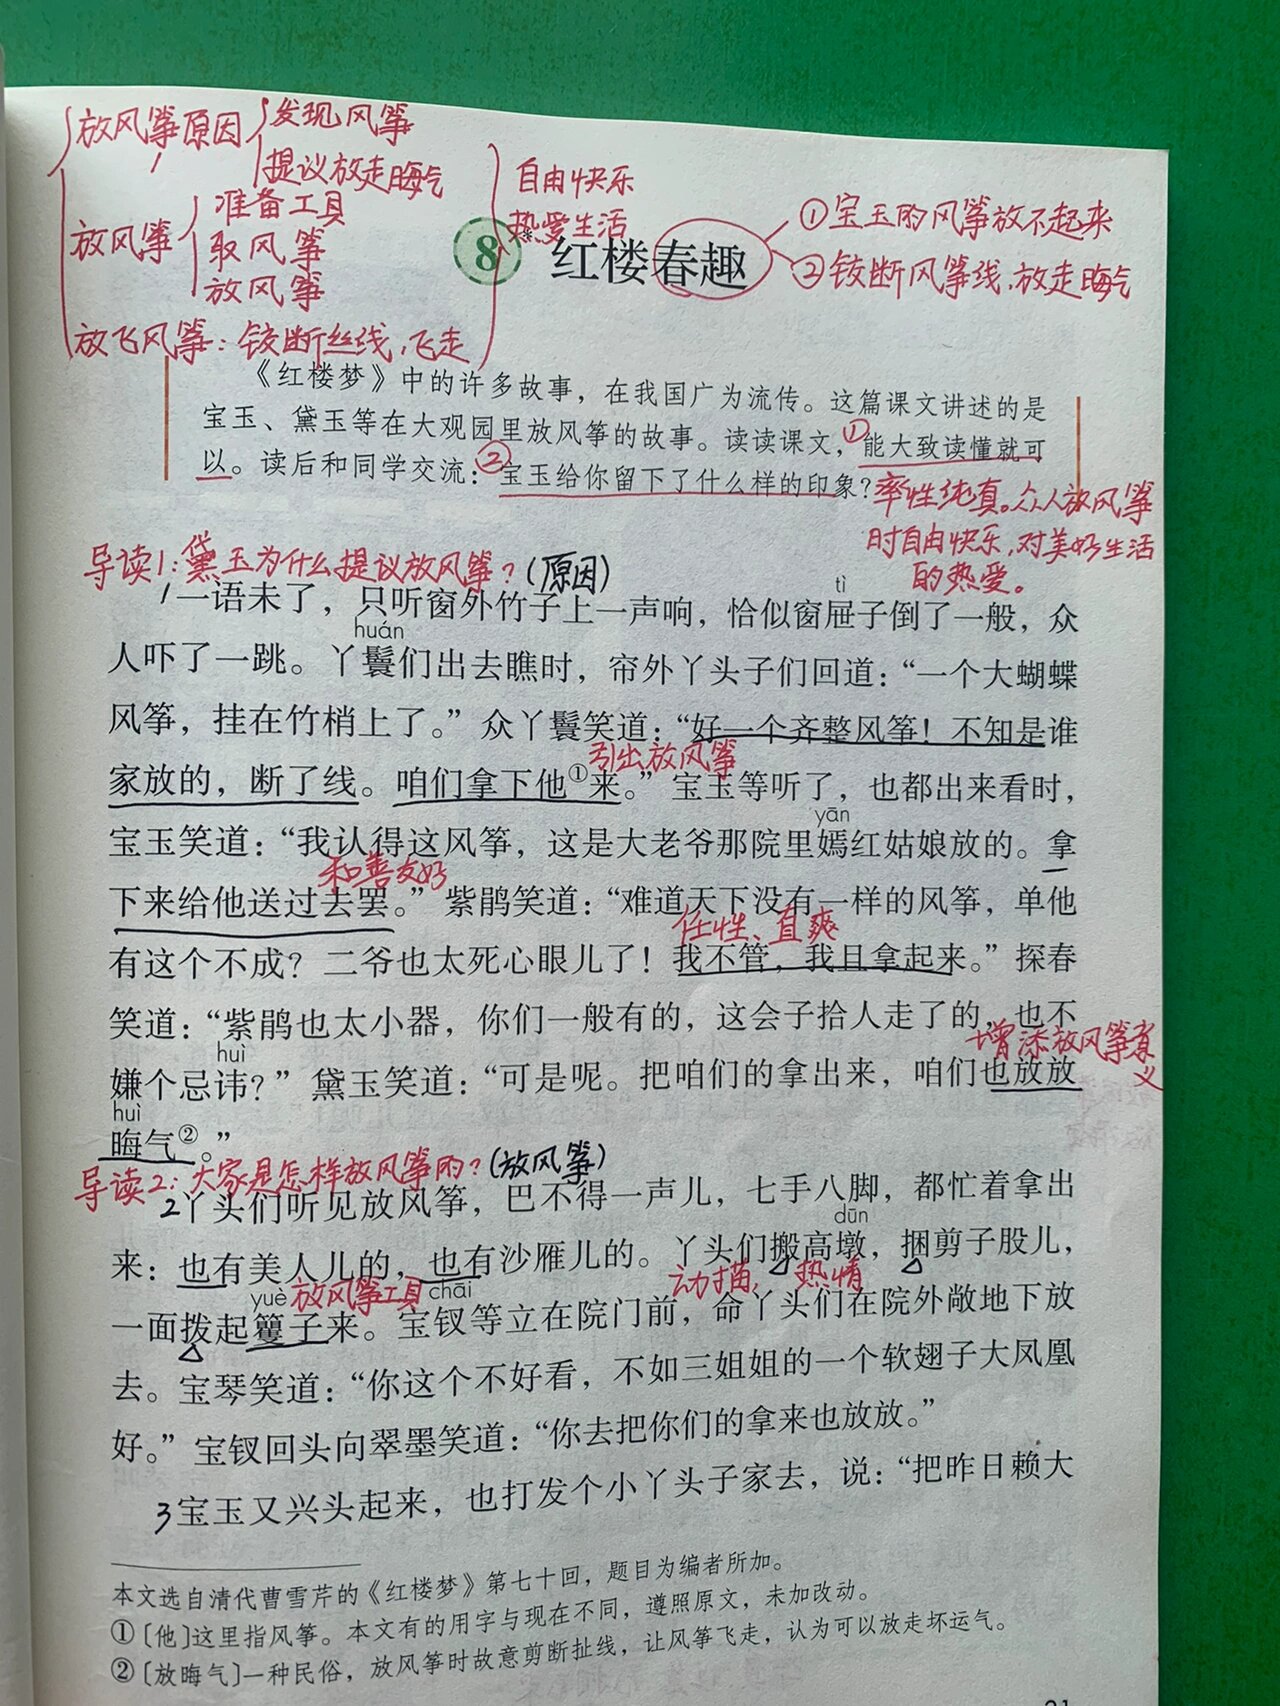 放风筝原因
发现风筝
提议放走晦气
放风筝
准备工具
取风筝
放风筝
放飞风筝：铰断丝线，飞走
自由快乐
热爱生活
8 *红楼春趣
①宝玉的风筝放不起来
②铰断风筝线，放走晦气
《红楼梦》中的许多故事，在我国广为流传。这篇课文讲述的是
宝玉、黛玉等在大观园里放风筝的故事。读读课文，①能大致读懂就可
以。读后和同学交流：②宝玉给你留下了什么样的印象？
率性纯真。众人放风筝
时自由快乐，对美好生活
的热爱。
导读1：黛玉为什么提议放风筝？（原因）
tì
1一语未了，只听窗外竹子上一声响，恰似窗屉子倒了一般，众
huán
人吓了一跳。丫鬟们出去瞧时，帘外丫头子们回道：“一个大蝴蝶
风筝，挂在竹梢上了。”众丫鬟笑道：“好一个齐整风筝！不知是谁
引出放风筝
家放的，断了线。咱们拿下他①来。”宝玉等听了，也都出来看时，
yān
宝玉笑道：“我认得这风筝，这是大老爷那院里嫣红姑娘放的。拿
和善友好
下来给他送过去罢。”紫鹃笑道：“难道天下没有一样的风筝，单他
任性、直爽
有这个不成？二爷也太死心眼儿了！我不管，我且拿起来。”探春
笑道：“紫鹃也太小器，你们一般有的，这会子拾人走了的，也不
增添放风筝意义
huì
嫌个忌讳？”黛玉笑道：“可是呢。把咱们的拿出来，咱们也放放
huì
晦气②。”
导读2：大家是怎样放风筝的？（放风筝）
2丫头们听见放风筝，巴不得一声儿，七手八脚，都忙着拿出
dūn
来：也有美人儿的，也有沙雁儿的。丫头们搬高墩，捆剪子股儿，
yuè 放风筝工具 chāi 动描、热情
一面拨起籰子来。宝钗等立在院门前，命丫头们在院外敞地下放
去。宝琴笑道：“你这个不好看，不如三姐姐的一个软翅子大凤凰
好。”宝钗回头向翠墨笑道：“你去把你们的拿来也放放。”
3宝玉又兴头起来，也打发个小丫头子家去，说：“把昨日赖大
本文选自清代曹雪芹的《红楼梦》第七十回，题目为编者所加。
①〔他〕这里指风筝。本文有的用字与现在不同，遵照原文，未加改动。
②〔放晦气〕一种民俗，放风筝时故意剪断扯线，让风筝飞走，认为可以放走坏运气。